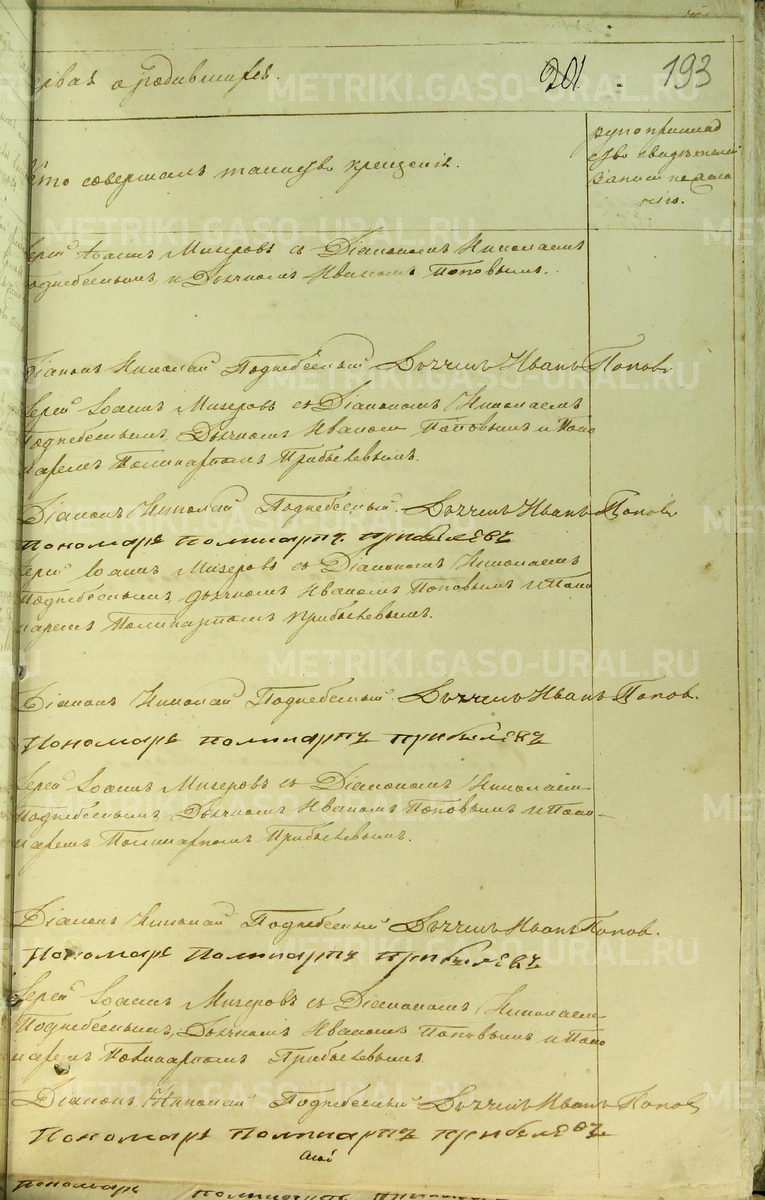 201 193
METRIKI.GASO-URAL.RU
ервая о родившихся.
Кто совершалъ таинство крещенія.
рукоприклад
ство свидѣтелей
записи по жела
нію.
METRIKI.GASO-URAL.RU
ерей Іоаннъ Мизеровъ съ Діакономъ Николаемъ
однебеснымъ, и Дьячкомъ Иваномъ Поповымъ.
METRIKI.GASO-URAL.RU
Діаконъ Николай Поднебесный Дьячекъ Иванъ Поповъ
Іерей Іоаннъ Мизеровъ съ Діакономъ Николаемъ
Поднебеснымъ, Дьячкомъ Иваномъ Поповымъ и Поно
маремъ Поликарпомъ Прибылевымъ.
METRIKI.GASO-URAL.RU
Діаконъ Николай Поднебесный. Дьячекъ Иванъ Поповъ
Пономарь Поликарпъ Прибылевъ
Іерей Іоаннъ Мизеровъ съ Діакономъ Николаемъ
Поднебеснымъ дьячкомъ Иваномъ Поповымъ и Поно
маремъ Поликарпомъ Прибылевымъ.
METRIKI.GASO-URAL.RU
Діаконъ Николай Поднебесный. Дьячекъ Иванъ Попов.
Пономарь Поликарпъ Прибылевъ
Іерей Іоаннъ Мизеровъ съ Діакономъ Николаем
Поднебеснымъ, Дьячкомъ Иваномъ Поповымъ и Поно-
маремъ Поликарпомъ Прибылевымъ.
METRIKI.GASO-URAL.RU
Діаконъ Николай Поднебесный Дьячекъ Иванъ Попов.
Пономарь Поликарпъ Прибылевъ
METRIKI.GASO-URAL.RU
Іерей Іоаннъ Мизеровъ съ Діакономъ Николаем
Поднебеснымъ, Дьячкомъ Иваномъ Поповымъ и Поно
маремъ Поликарпомъ Прибылевымъ.
METRIKI.GASO-URAL.RU
Діаконъ Николай Поднебесный Дьячекъ Иванъ Поповъ
Пономарь Поликарпъ Прибылевъ
Пономарь Поликарпъ